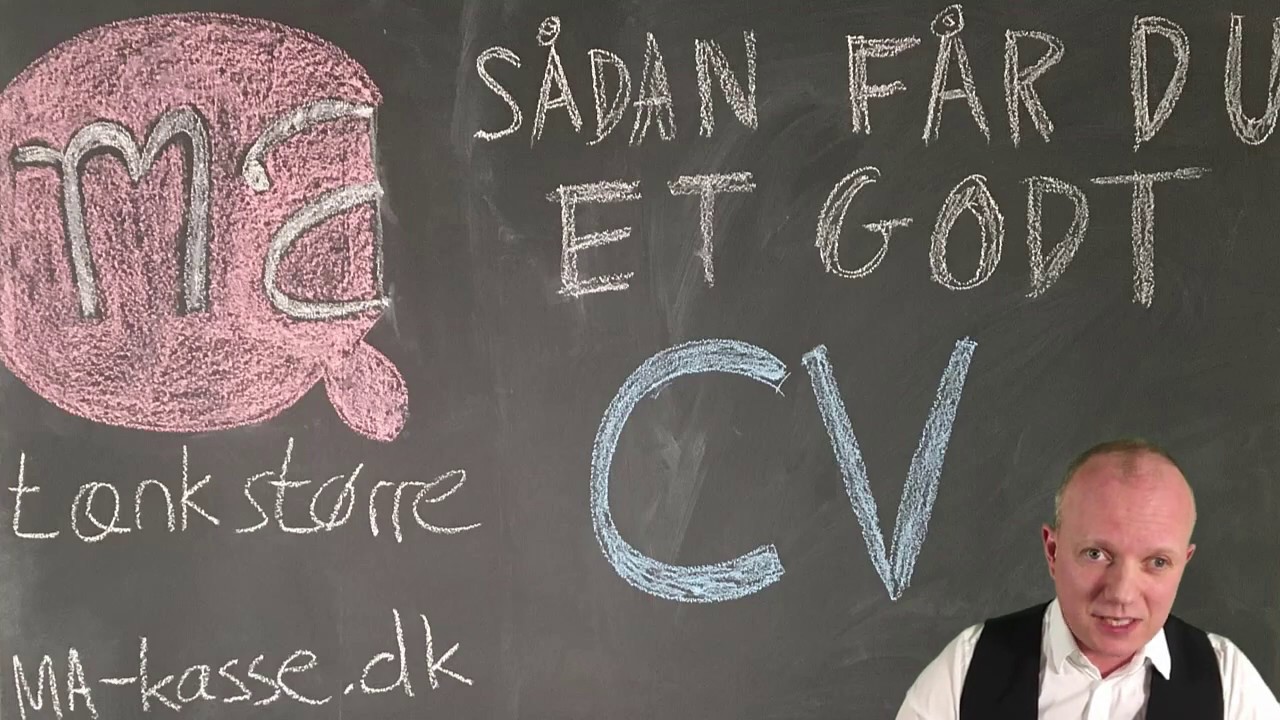 ma
tænk større
MA-kasse.dk
SÅDAN FÅR DU
ET GODT
CV